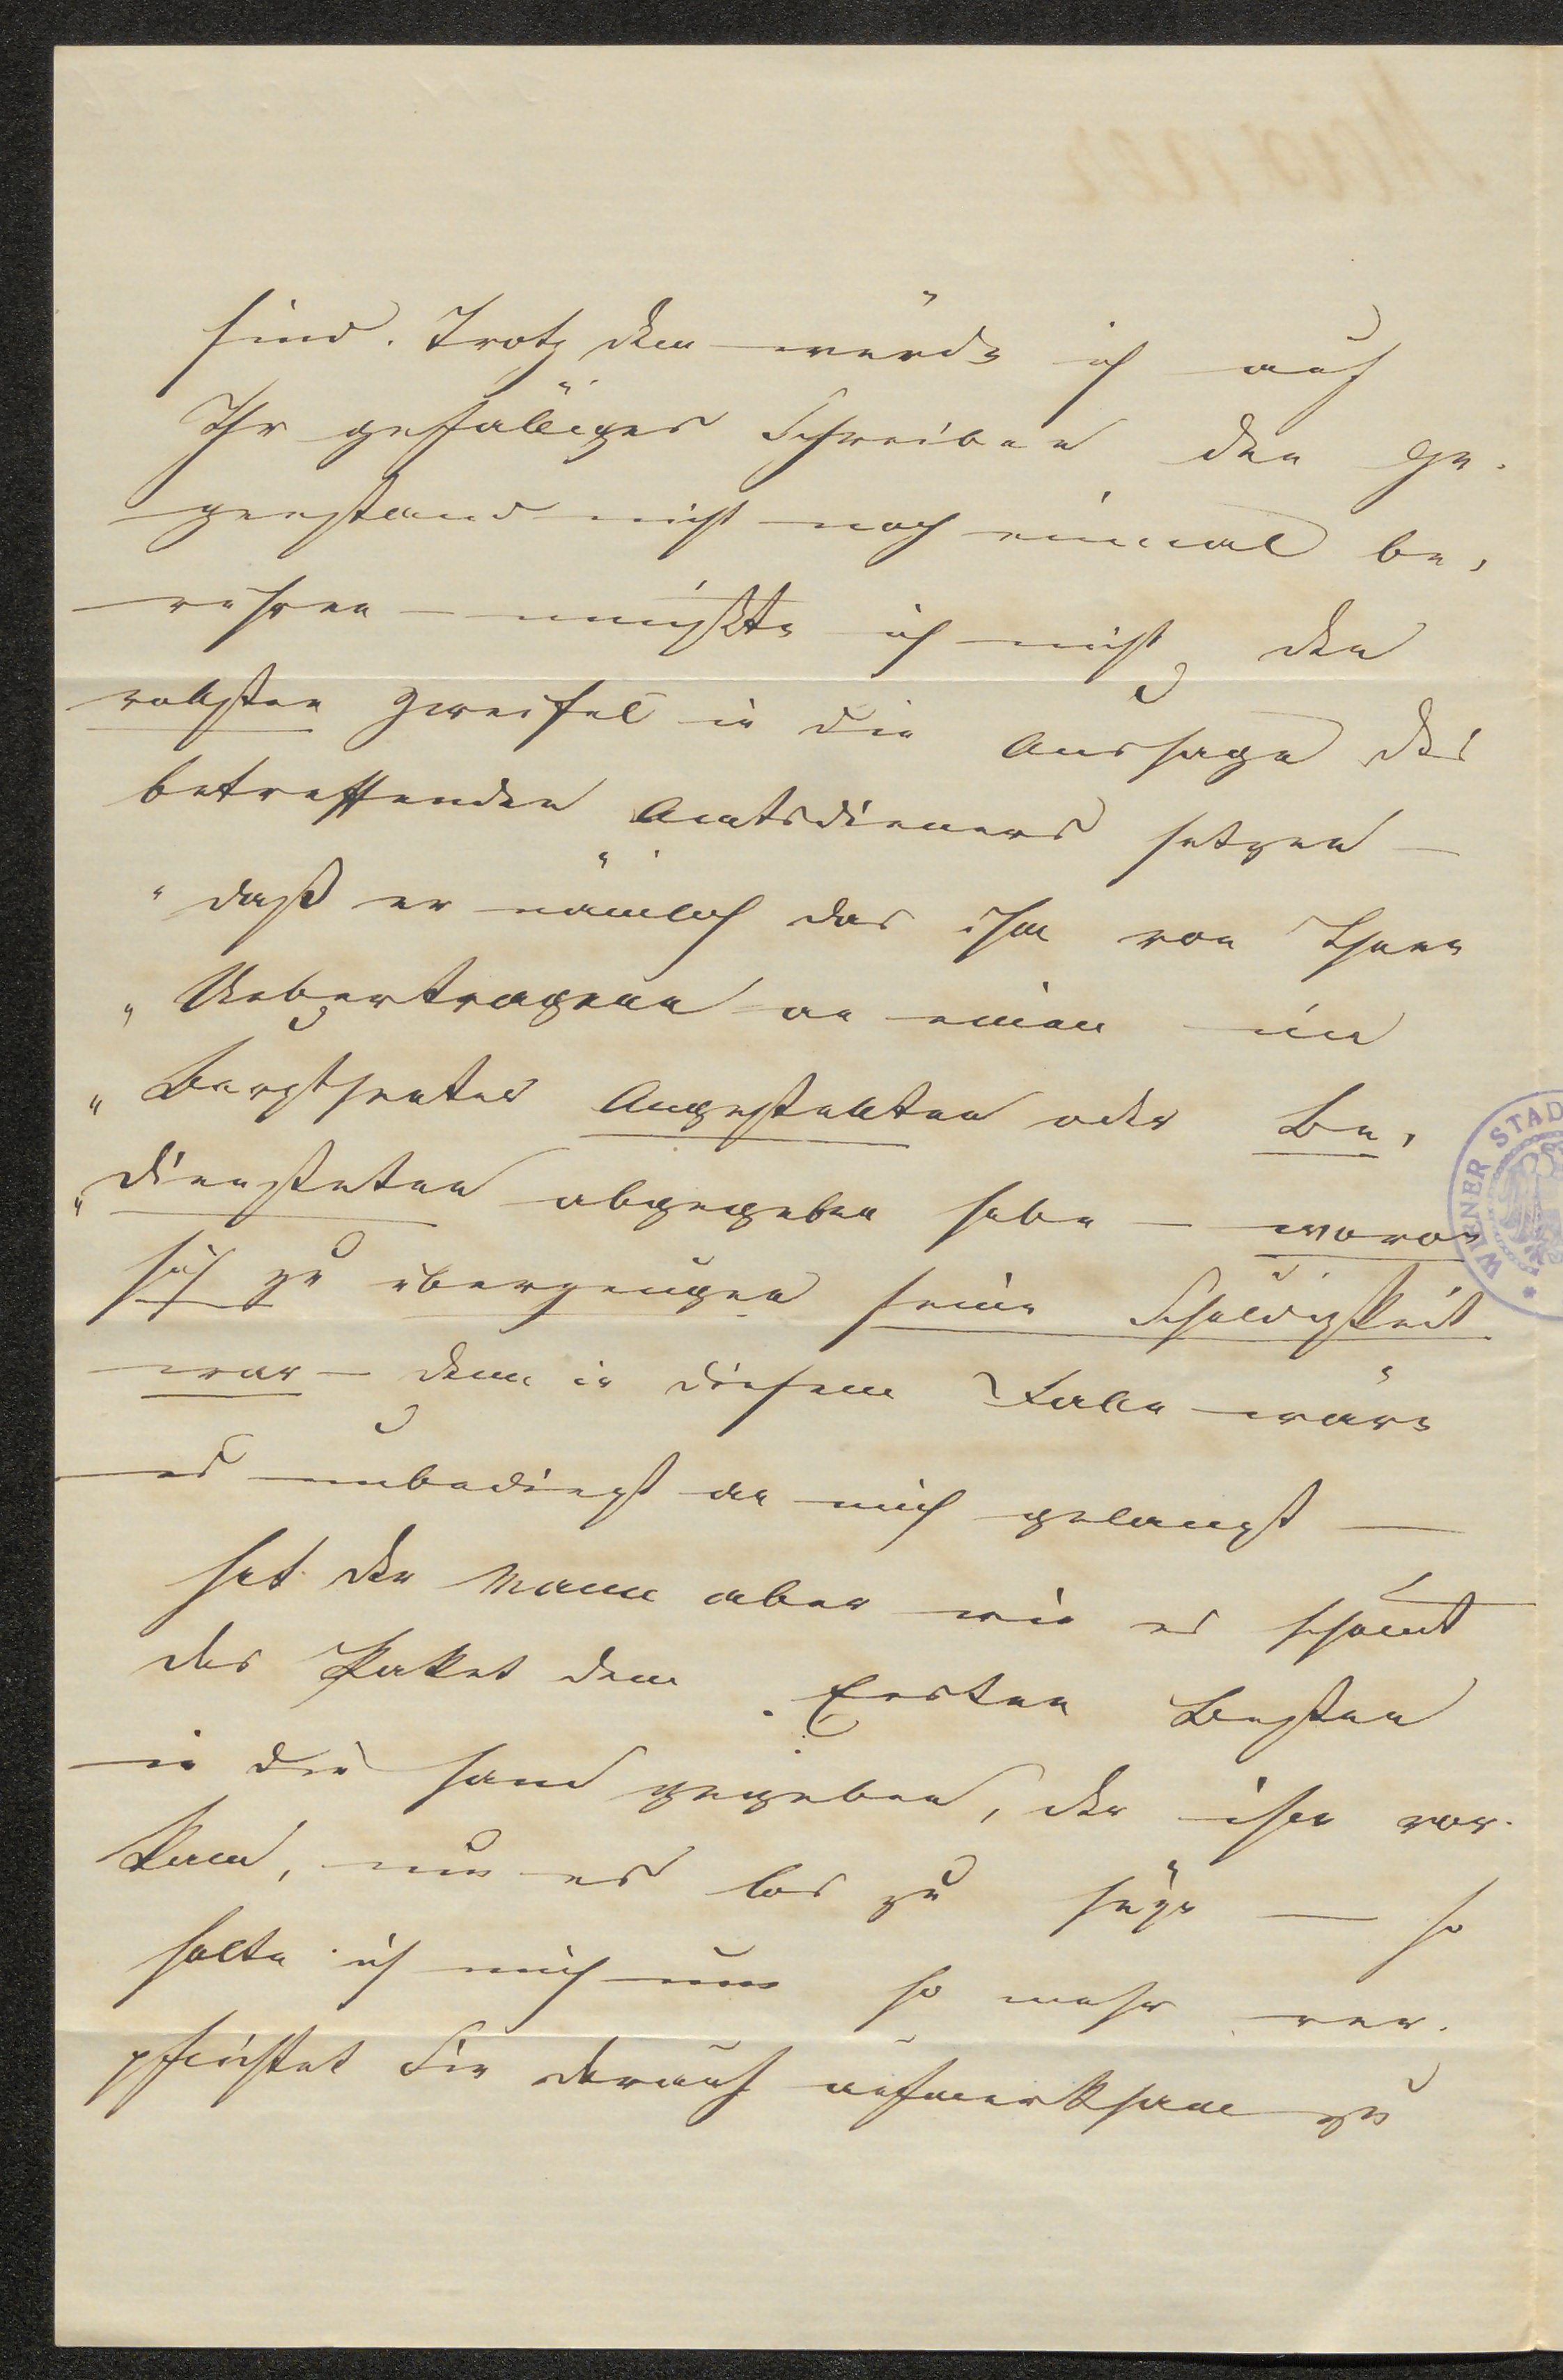 sind. Trotz dem würde ich auf
Ihr gefälliges Schreiben den Ge-
genstand nicht noch einmal be-
rühren – müßte ich nicht den
vollsten Zweifel in die Aussage des
betreffenden Amtsdieners setzen –
"daß er nämlich das ihm von Ihnen
"Uebertragene an einen im
"Burgtheater Angestellten oder Be-
"diensteten abgegeben habe – wovon
sich zu überzeugen seine Schuldigkeit
war – denn in diesem Falle wäre
es unbedingt an mich gelangt –
hat der Mann aber wie es scheint
das Paket dem Ersten Besten
in die Hand gegeben, der ihm vor-
kam, um es los zu seyn – so
halte ich mich um so mehr ver-
pflichtet Sie darauf aufmerksam zu
WIENER STAD